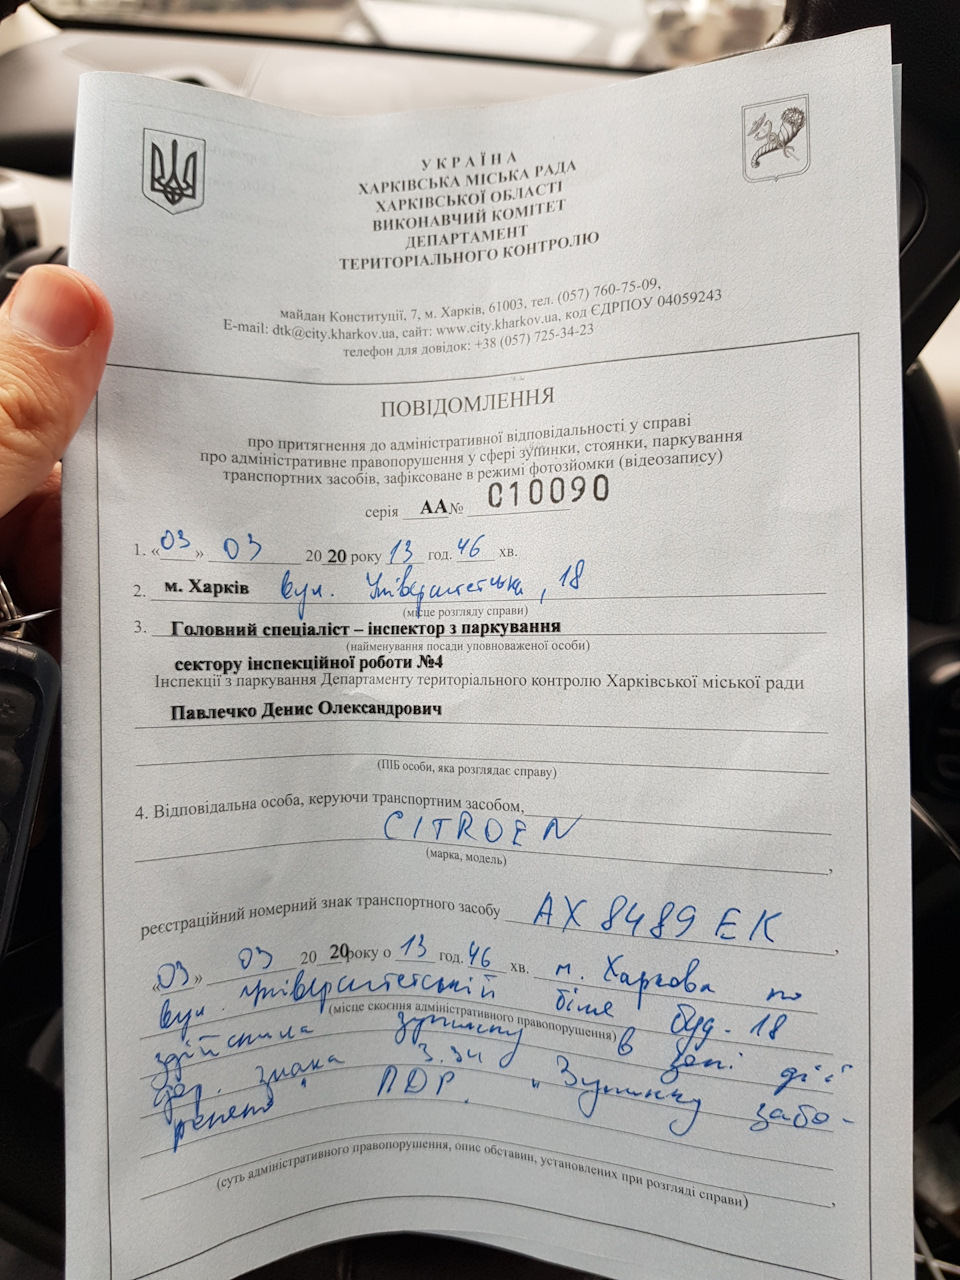 УКРАЇНА
ХАРКІВСЬКА МІСЬКА РАДА
ХАРКІВСЬКОЇ ОБЛАСТІ
ВИКОНАВЧИЙ КОМІТЕТ
ДЕПАРТАМЕНТ
ТЕРИТОРІАЛЬНОГО КОНТРОЛЮ
майдан Конституції, 7, м. Харків, 61003, тел. (057) 760-75-09,
E-mail: dtk@city.kharkov.ua, сайт: www.city.kharkov.ua, код ЄДРПОУ 04059243
телефон для довідок: +38 (057) 725-34-23
ПОВІДОМЛЕННЯ
про притягнення до адміністративної відповідальності у справі
про адміністративне правопорушення у сфері зупинки, стоянки, паркування
транспортних засобів, зафіксоване в режимі фотозйомки (відеозапису)
серія АА№ 010090
1. «03» 03 2020 року 13 год. 46 хв.
2. м. Харків вул. Університетська, 18
(місце розгляду справи)
3. Головний спеціаліст – інспектор з паркування
(найменування посади уповноваженої особи)
сектору інспекційної роботи №4
Інспекції з паркування Департаменту територіального контролю Харківської міської ради
Павлечко Денис Олександрович
(ПІБ особи, яка розглядає справу)
4. Відповідальна особа, керуючи транспортним засобом,
CITROEN
(марка, модель)
реєстраційний номерний знак транспортного засобу АХ 8489 ЕК,
«03» 03 2020року о 13 год. 46 хв. м. Харкова по
вул. Університетській біля буд. 18
(місце скоєння адміністративного правопорушення)
здійснила зупинку в зоні дії
дор. знака 3.34 "Зупинку забо-
ронено" ПДР.
(суть адміністративного правопорушення, опис обставин, установлених при розгляді справи)